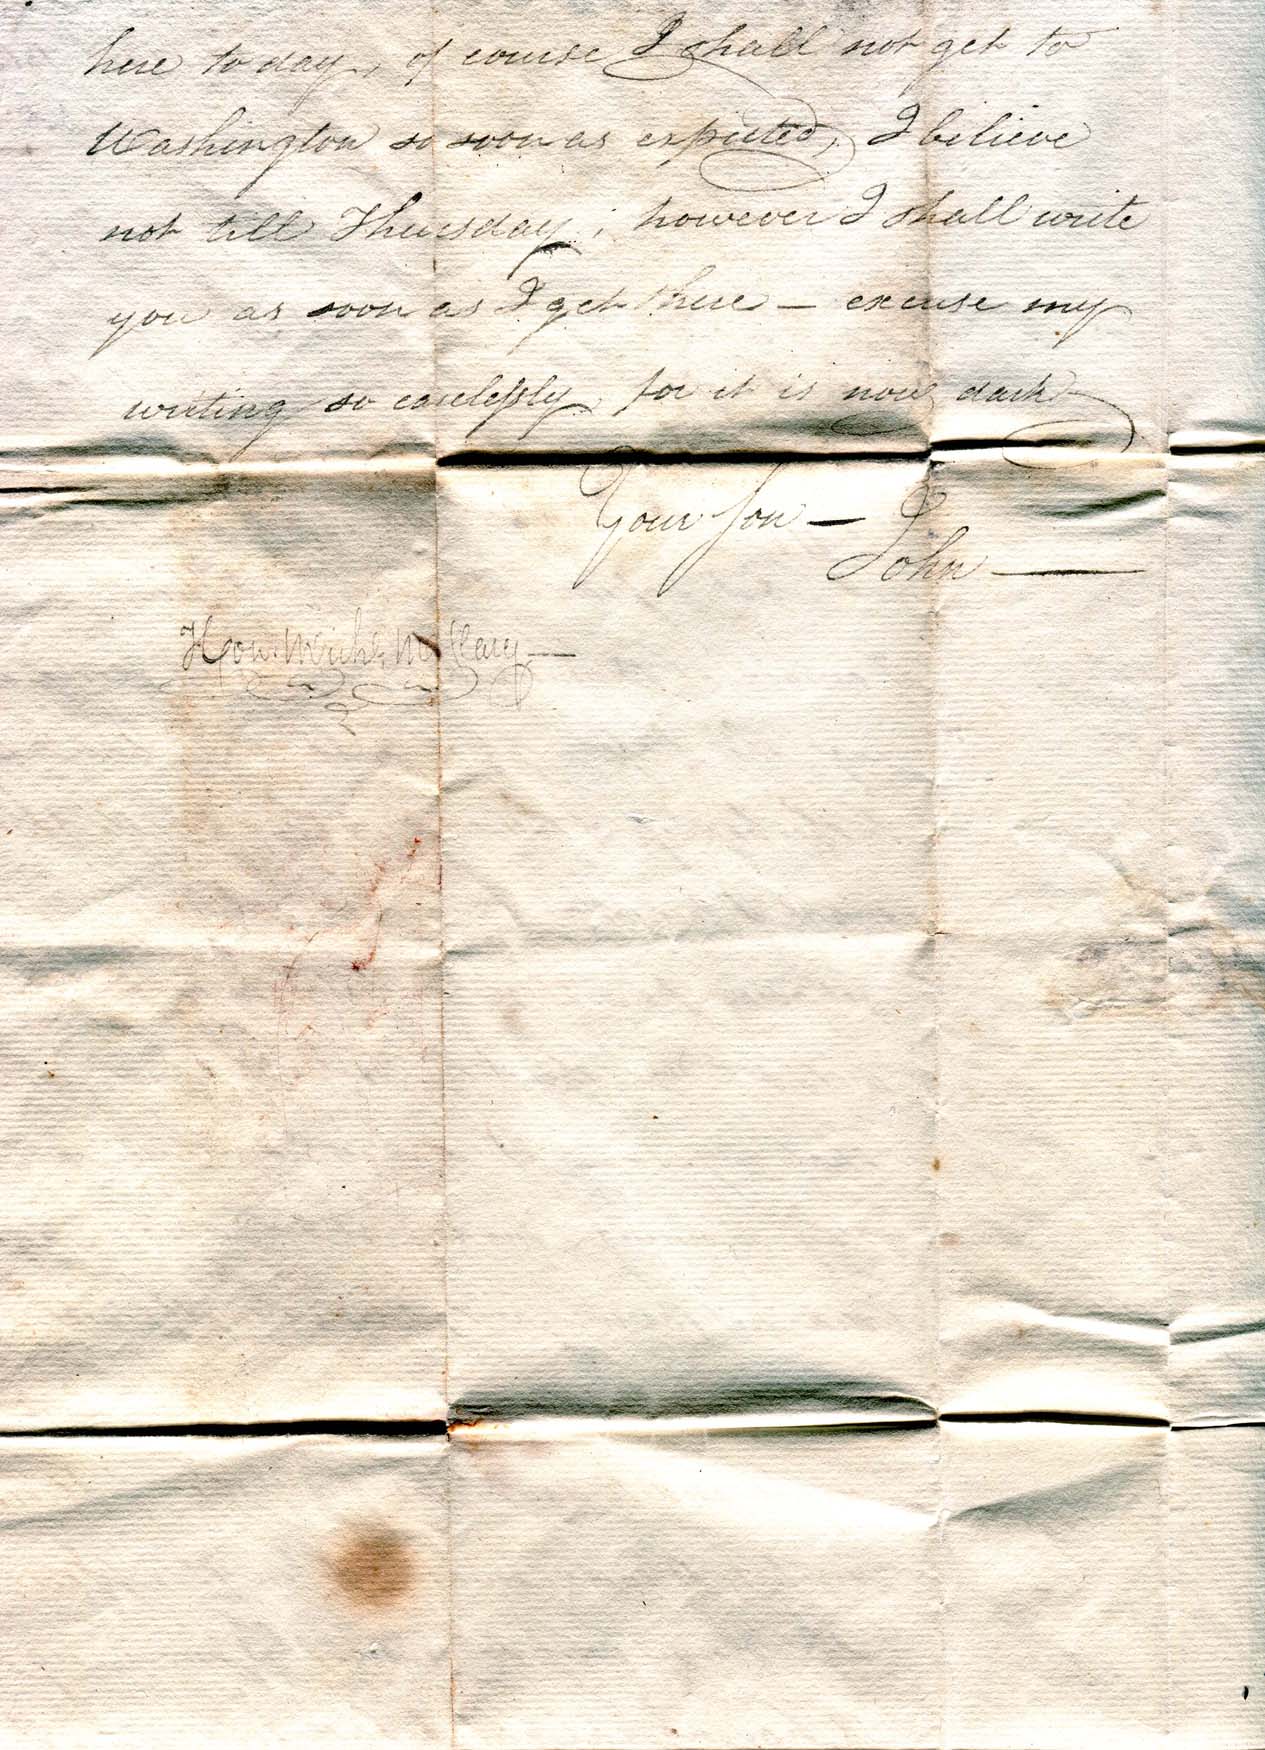 here to day, of course I shall not get to
Washington so soon as expected, I believe
not till Thursday; however I shall write
you as soon as I get there — excuse my
writing so carelessly, for it is now dark
Your Son —
John —
Hon. Michl. McClary —